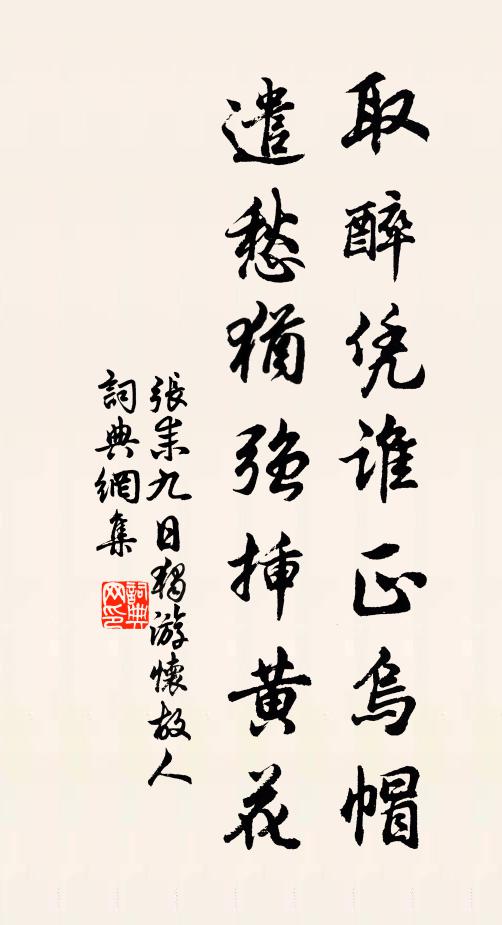 取醉凭谁正乌帽
遣愁犹强插黄花
張耒九日独游懷故人
詞典網集
詞典
网印